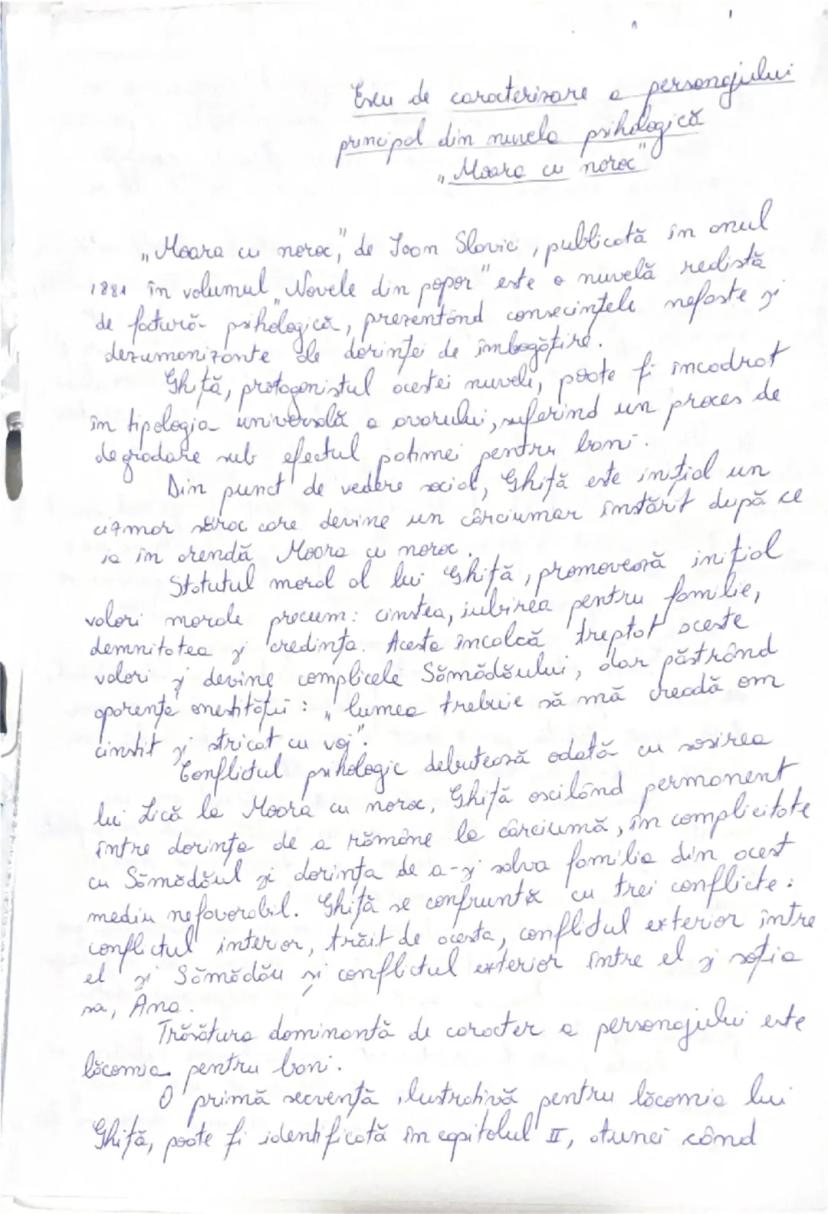 Eseu de caracterizare a personajului
principal din nuvela psihologică
„Moara cu noroc"
„Moara cu noroc", de Ioan Slavici, publicată în anul
1881 în volumul „Novele din popor" este o nuvelă realistă
de factură psihologică, prezentând consecințele nefaste și
dezumanizante ale dorinței de îmbogățire.
Ghiță, protagonistul acestei nuvele, poate fi încadrat
în tipologia universală a avarului, suferind un proces de
degradare sub efectul patimei pentru bani.
Din punct de vedere social, Ghiță este inițial un
cizmar sărac care devine un cârciumar înstărit după ce
ia în arendă Moara cu noroc.
Statutul moral al lui Ghiță, promovează inițial
valori morale precum: cinstea, iubirea pentru familie,
demnitatea și credința. Acesta încalcă treptat aceste
valori și devine complicele Sămădăului, dar păstrând
aparența onestității: „lumea trebuie să mă creadă om
cinstit și stricat cu voi".
Conflictul psihologic debutează odată cu sosirea
lui Lică la Moara cu noroc, Ghiță oscilând permanent
între dorința de a rămâne la cârciumă, în complicitate
cu Sămădăul și dorința de a-și salva familia din acest
mediu nefavorabil. Ghiță se confruntă cu trei conflicte:
conflictul interior, trăit de acesta, conflictul exterior între
el și Sămădău și conflictul exterior între el și soția
sa, Ana.
Trăsătura dominantă de caracter a personajului este
lăcomia pentru bani.
O primă secvență ilustrativă pentru lăcomia lui
Ghiță, poate fi identificată în capitolul II, atunci când